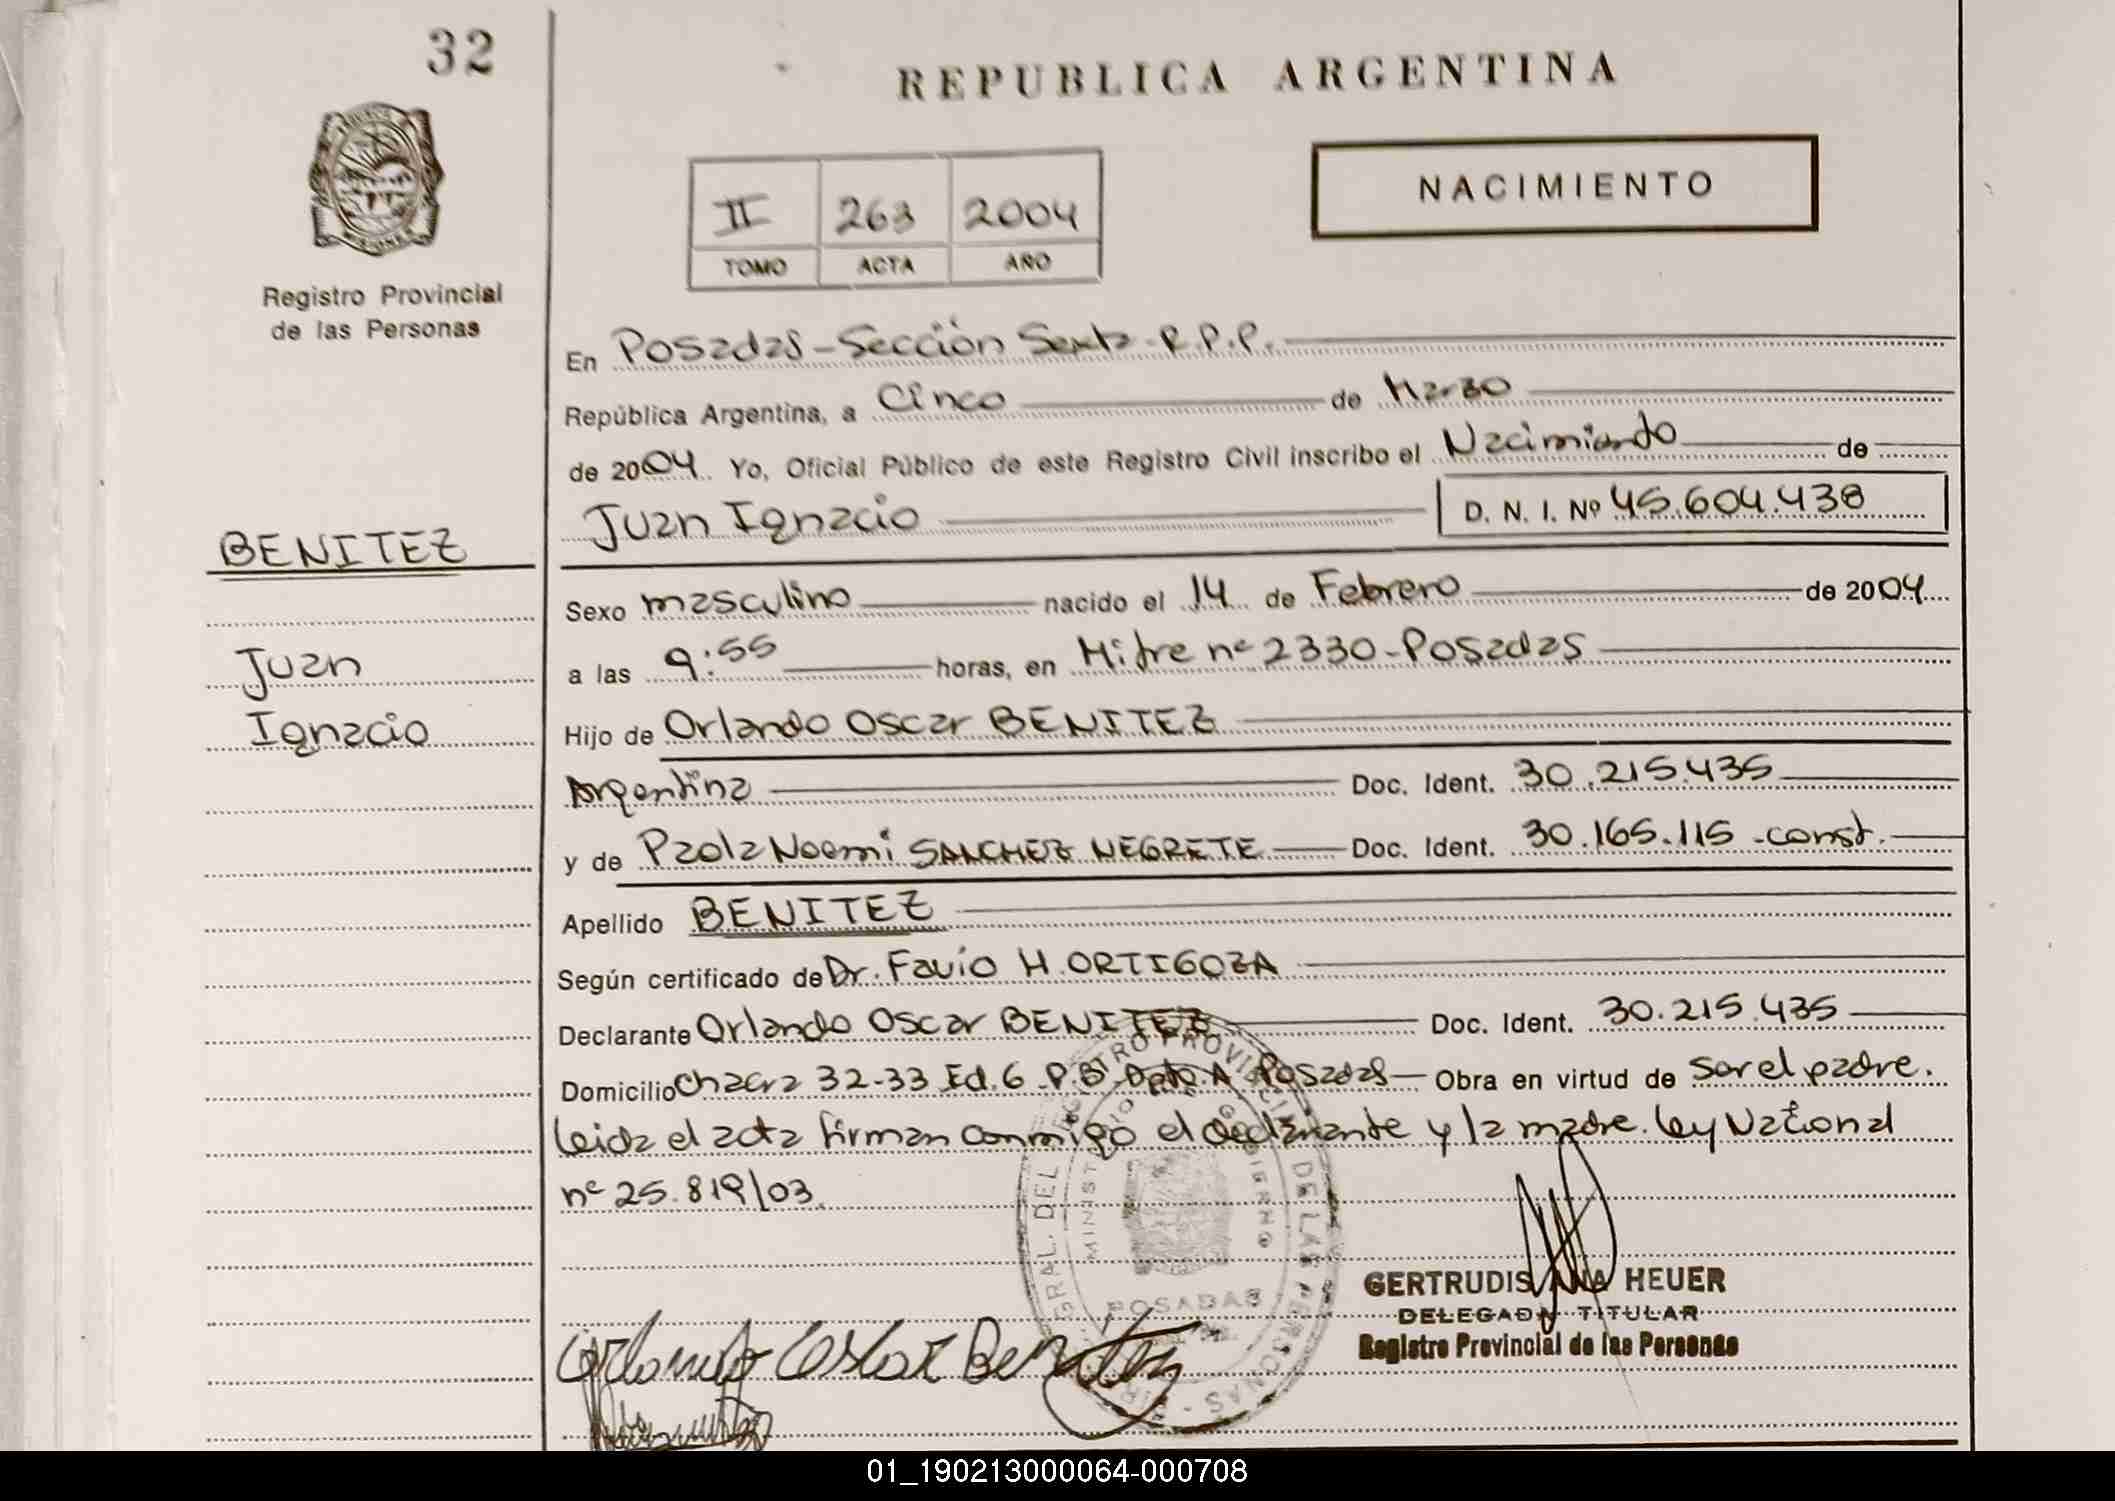 32
REPUBLICA ARGENTINA
NACIMIENTO
II 263 2004
TOMO ACTA AÑO
Registro Provincial
de las Personas
En Posadas - Sección Sexta - R.P.P.
República Argentina, a Cinco de Marzo
de 2004 Yo, Oficial Público de este Registro Civil inscribo el Nacimiento de
Juan Ignacio D. N. I. Nº 45.604.438
BENITEZ
Juan
Ignacio
Sexo masculino nacido el 14 de Febrero de 2004
a las 9:55 horas, en Mitre nº 2330 - Posadas
Hijo de Orlando Oscar BENITEZ
Argentina Doc. Ident. 30.215.435
y de Paola Noemi SANCHEZ NEGRETE Doc. Ident. 30.165.115 - const.
Apellido BENITEZ
Según certificado de Dr. Favio H. ORTIGOZA
Declarante Orlando Oscar BENITEZ Doc. Ident. 30.215.435
Domicilio Chacra 32-33 Ed. 6 P.B. Dpto. A Posadas Obra en virtud de ser el padre.
Leida el acta firman conmigo el declarante y la madre. Ley National
nº 25.819/03.
GRAL. DEL REGISTRO PROVINCIAL DE LAS PERSONAS
MINISTERIO DE GOBIERNO
POSADAS
GERTRUDIS HEUER
DELEGADA TITULAR
Registro Provincial de las Personas
Orlando Oscar Benitez
01_190213000064-000708